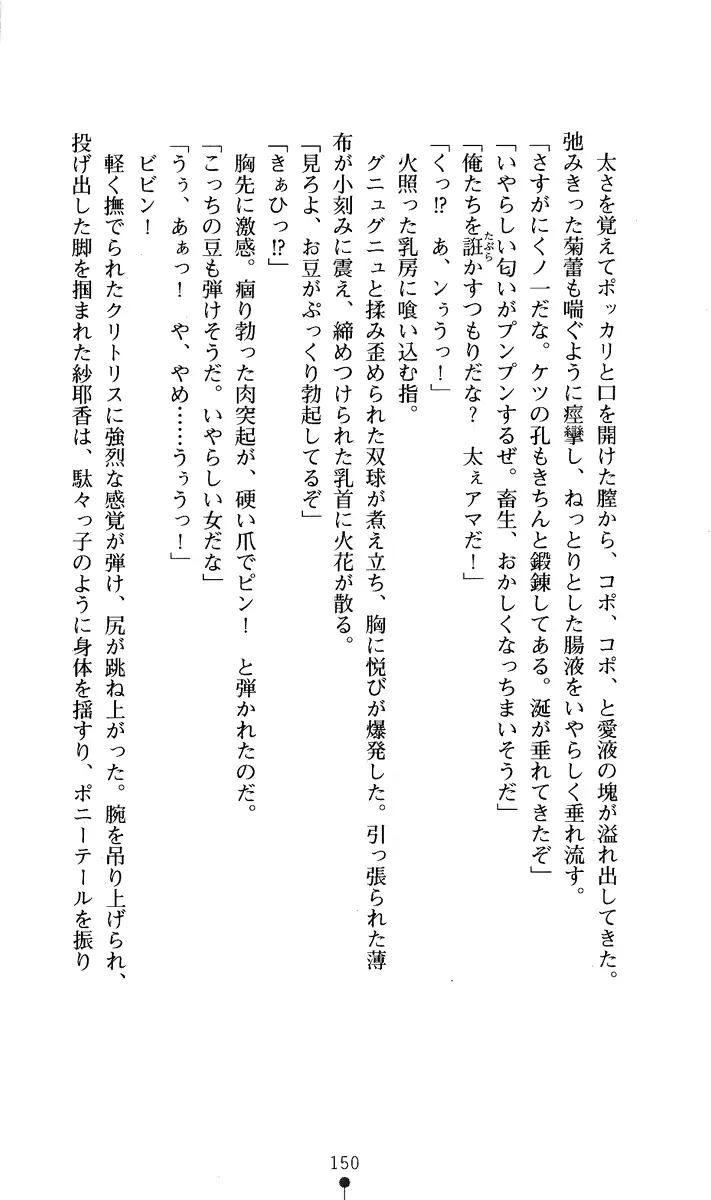 太さを覚えてポッカリと口を開けた膣から、コポ、コポ、と愛液の塊が溢れ出してきた。
弛みきった菊蕾も喘ぐように痙攣し、ねっとりとした腸液をいやらしく垂れ流す。
「さすがにくノ一だな。ケツの孔もきちんと鍛錬してある。涎が垂れてきたぞ」
「いやらしい匂いがプンプンするぜ。畜生、おかしくなっちまいそうだ」
「俺たちを誑かすつもりだな？　太ぇアマだ！」
「くっ!?　あ、ンぅうっ！」
火照った乳房に喰い込む指。
グニュグニュと揉み歪められた双球が煮え立ち、胸に悦びが爆発した。引っ張られた薄
布が小刻みに震え、締めつけられた乳首に火花が散る。
「見ろよ、お豆がぷっくり勃起してるぞ」
「きぁひっ!?」
胸先に激感。痼り勃った肉突起が、硬い爪でピン！　と弾かれたのだ。
「こっちの豆も弾けそうだ。いやらしい女だな」
「うぅ、あぁっ！　や、やめ……うぅうっ！」
ビビン！
軽く撫でられたクリトリスに強烈な感覚が弾け、尻が跳ね上がった。腕を吊り上げられ、
投げ出した脚を掴まれた紗耶香は、駄々っ子のように身体を揺すり、ポニーテールを振り
150